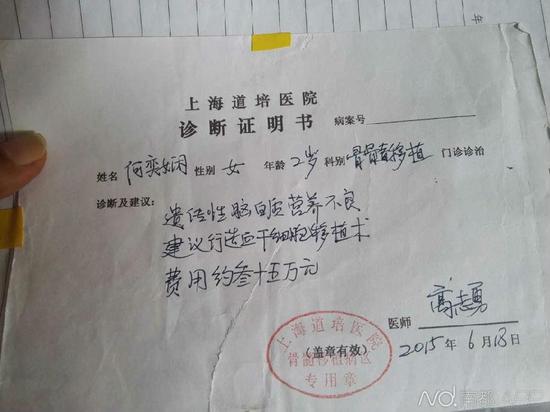 上海道培医院
诊断证明书 病案号
姓名 何奕娴 性别 女 年龄 2岁 科别 骨髓移植 门诊诊治
诊断及建议:
遗传性脑白质营养不良
建议行造血干细胞移植术
费用约叁十五万元
医师 高志勇
(盖章有效)
2015年6月18日
上海道培医院
骨髓移植病区
专用章
南都